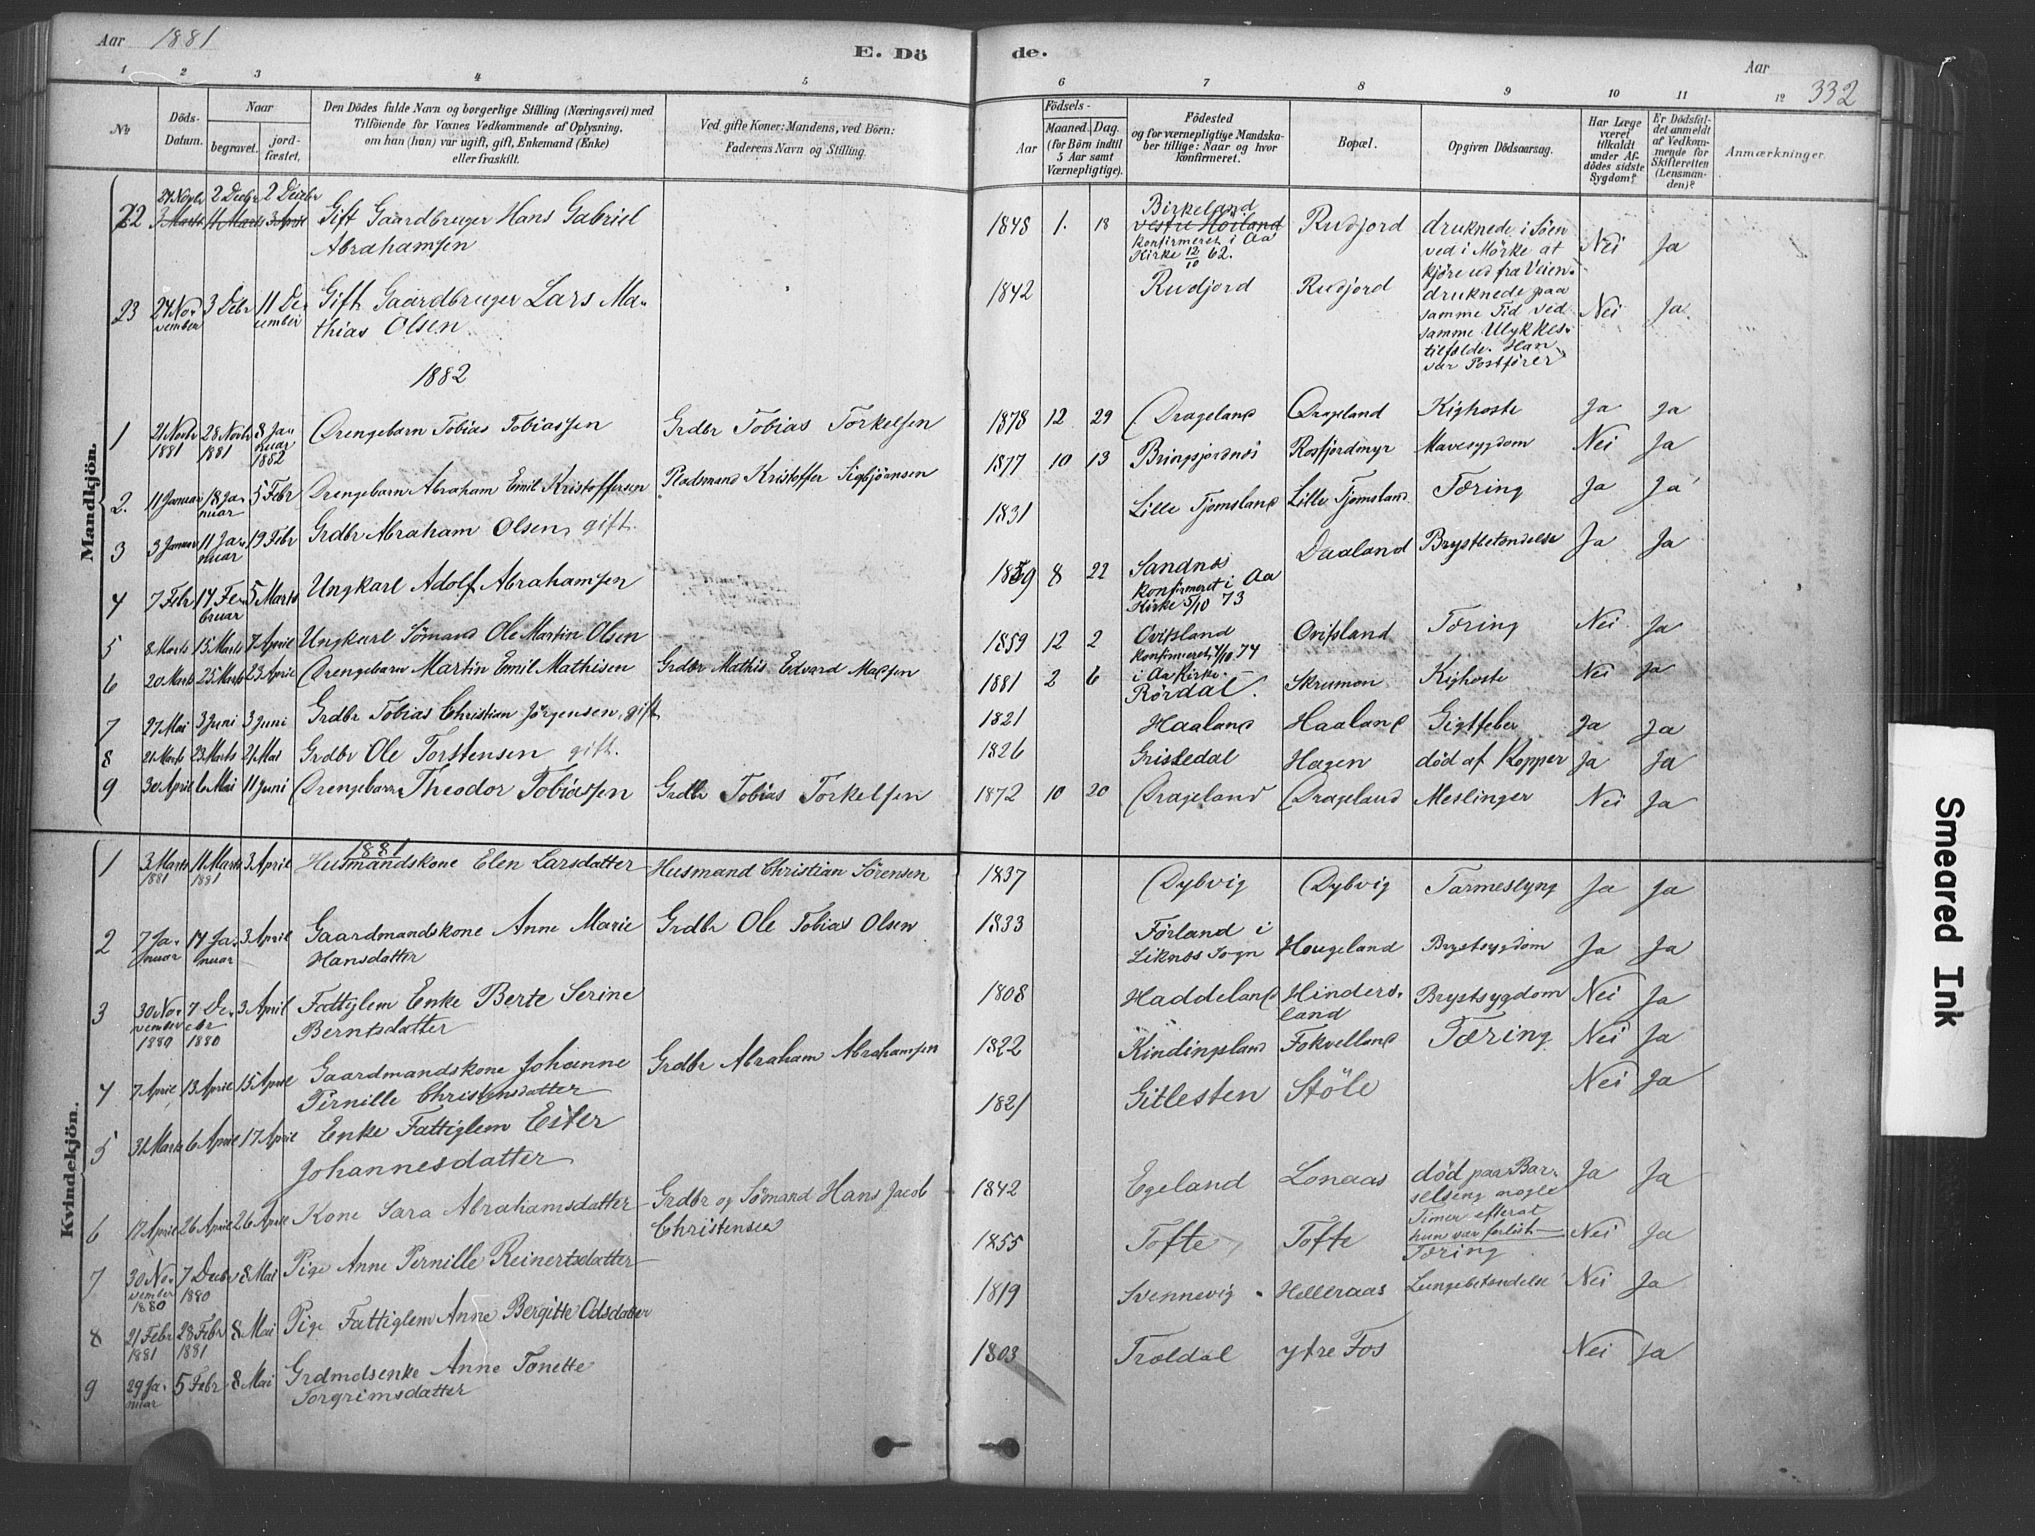 Aar 1881
E. Dö
de.
Aar
332
1 2 3 4 5 6 7 8 9 10 11 12
No
Döds-
Datum.
Naar
begravet.
jord-
fæstet.
Den Dödes fulde Navn og borgerlige Stilling (Næringsvei) med
Tilföiende for Voxnes Vedkommende af Oplysning,
om han (hun) var ugift, gift, Enkemand (Enke)
eller fraskilt.
Ved gifte Koner: Mandens, ved Börn:
Faderens Navn og Stilling.
Födsels-
Aar
Maaned.
Dag.
(for Börn indtil
5 Aar samt
Værnepligtige).
Födested
og for værnepligtige Mandska-
ber tillige: Naar og hvor
konfirmeret.
Bopæl.
Opgiven Dödsaarsag.
Har Læge
været
tilkaldt
under Af-
dödes sidste
Sygdom?
Er Dödsfal-
det anmeldt
af Vedkom-
mende for
Skifteretten
(Lensman-
den)?
Anmærkninger.
Mandkjön.
22 27 Novbr 2 Decbr 2 Decebr Gift Gaardbruger Hans Gabriel 1848 1. 18 Birkeland Rudjord druknede i Söen Nei Ja
3 Marts 11 Marts 3 April Abrahamsen vestre Hörland ved i Mörke at
konfirmeret i Aa kjöre ud fra Veien.
Kirke 12/10 62.
23 27 No- 3 Debr 11 De- Gift Gaardbruger Lars Ma- 1842 Rudjord Rudjord druknede paa Nei Ja
vember cember thias Olsen samme Tid ved
samme Ulykkes-
tilfælde. Han
var Postförer
1882
1 21 Novbr 28 Novbr 8 Ja- Drengebarn Tobias Tobiassen Grdbr Tobias Torkelsen 1878 12 29 Drageland Drageland Kighoste Ja Ja
1881 1881 nuar
1882
2. 11 Januar 18 Ja- 5 Febr Drengebarn Abraham Emil Kristoffersen Pladsmand Kristoffer Sigbjörnsen 1877 10 13 Bringsjordnes Rosfjordmyr Mavesygdom Nei Ja
nuar
3 3 Januar 11 Ja- 19 Febr Grdbr Abraham Olsen, gift. 1831 Lille Tjomsland Lille Tjomsland Tæring Ja Ja
nuar
4 7 Febr 14 Fe- 5 Marts Ungkarl Adolf Abrahamsen 1859 8 22 Sandnes Daaland Brystbetendelse Ja Ja
bruar konfirmeret i Aa
Kirke 5/10 73
5 8 Marts 15 Marts 7 April Ungkarl Sömand Ole Martin Olsen 1859 12 2 Ovisland Ovisland Tæring Nei Ja
konfirmeret 4/10 74
i Aa Kirke.
6 20 Marts 25 Marts 23 April Drengebarn Martin Emil Mathisen Grdbr Mathis Edvard Madsen 1881 2 6 Rördal. Skrumon Kighoste Nei Ja
7 27 Mai 3 Juni 3 Juni Grdbr Tobias Christian Jörgensen, gift 1821 Haaland Haaland Gigtfeber Ja Ja
8 21 Marts 23 Marts 21 Mai Grdbr Ole Torstensen gift. 1826 Gristedal Hagen död af Kopper Ja Ja
9 30 April 6 Mai 11 Juni Drengebarn Theodor Tobiassen Grdbr Tobias Torkelsen 1872 10 20 Drageland Drageland Meslinger Nei Ja
Kvindekjön.
1881
1 3 Marts 11 Marts 3 April Husmandskone Elen Larsdatter Husmand Christian Sörensen 1837 Dybvig Dybvig Tarmeslyng Ja Ja
1881 1881
2 7 Ja- 14 Ja- 3 April Gaardmandskone Anne Marie Grdbr Ole Tobias Olsen 1833 Förland i Hougeland Brystsygdom Ja Ja
nuar nuar Hansdatter Liknes Sogn
3 30 No- 7 De- 3 April Fattiglem Enke Berte Serine 1808 Haddeland Hinders- Brystsygdom Nei Ja
vember cbr Berntsdatter land
1880 1880
4 7 April 13 April 15 April Gaardmandskone Johanne Grdbr Abraham Abrahamsen 1822 Kindingsland Fokvelland Tæring Nei Ja
Pernille Christensdatter
5 31 Marts 6 April 17 April Enke Fattiglem Ester 1821 Gitlesten Stöle Nei Ja
Johannesdatter
6 12 April 26 April 26 April Kone Sara Abrahamsdatter Grdbr og Sömand Hans Jacob 1842 Egeland Lonaas död paa Bar- Ja Ja
Christensen selseng nogle
Timer efterat
hun var forlöst.
7 30 No- 7 Decbr 8 Mai Pige Anne Pernille Reinertsdatter 1855 Tofte Tofte Tæring Nei Ja
vember 1880
1880
8 21 Febr 28 Febr 8 Mai Pige Fattiglem Anne Bergitte Odsdatter 1819 Svennevig Helleraas Lungebetendelse Nei Ja
1881 1881
9 29 Ja- 5 Febr 8 Mai Grdmdsenke Anne Tonette 1803 Troldal ytre Fos Nei Ja
nuar Torgrimsdatter
Smeared Ink